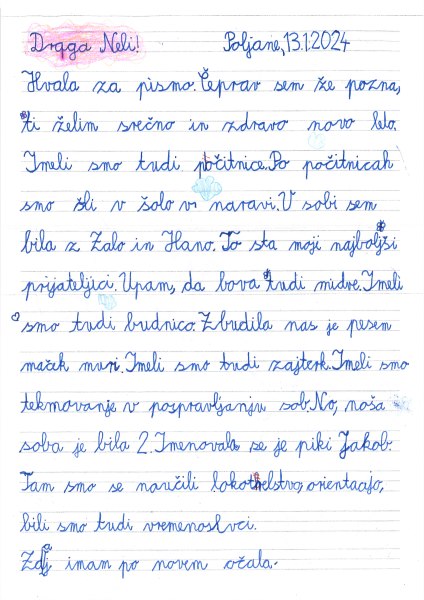 Draga Neli! Poljane, 13.1.2024
Hvala za pismo. Čeprav sem že pozna,
ti želim srečno in zdravo novo leto.
Imeli smo tudi počitnice. Po počitnicah
smo šli v šolo v naravi. V sobi sem
bila z Zalo in Hano. To sta moji najboljši
prijateljici. Upam, da bova tudi midve. Imeli
smo tudi budnico. Zbudila nas je pesem
maček muri. Imeli smo tudi zajterk. Imeli smo
tekmovanje v pospravljanju sob. No, noša
soba je bila 2. Imenovala se je piki Jakob.
Tam smo se naučili lokothelstvo, orientacijo,
bili smo tudi vremenoslvci.
Zdj imam po novem očala.